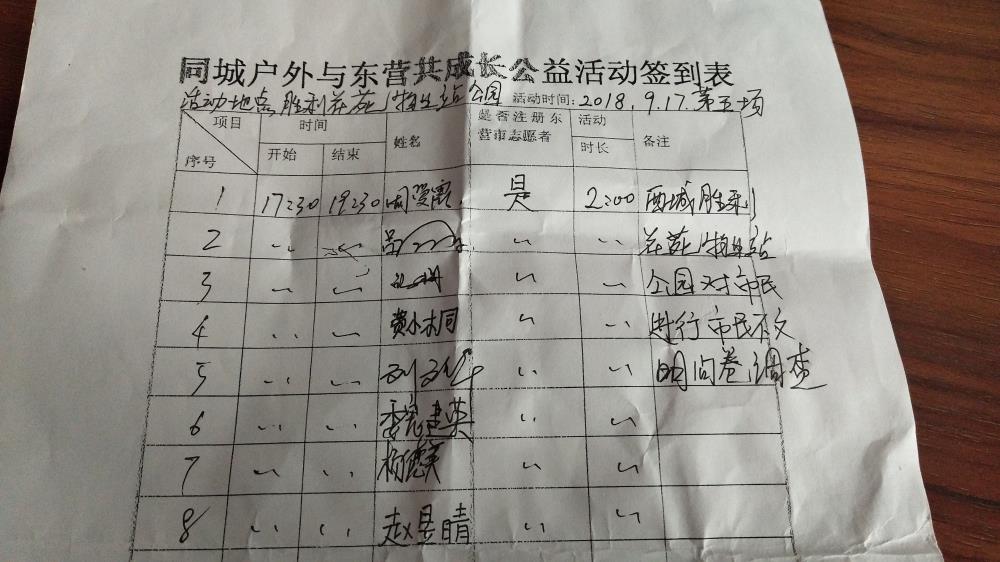 同城户外与东营共成长公益活动签到表
活动地点胜利花苑 物业站公园 活动时间:2018.9.17.第五场
项目 序号 时间 开始 结束 姓名 是否注册东营市志愿者 活动时长 备注
1 17:30 19:30 周受露 是 2:00 西城胜利
2 〃 〃 吕 〃 〃 花苑物业站
3 〃 〃 〃 〃 公园对市民
4 〃 〃 黄小桐 〃 〃 进行市民不文
5 〃 〃 〃 〃 明问卷调查
6 〃 〃 建英 〃 〃
7 〃 〃 杨德美 〃 〃
8 〃 〃 赵昱晴 〃 〃